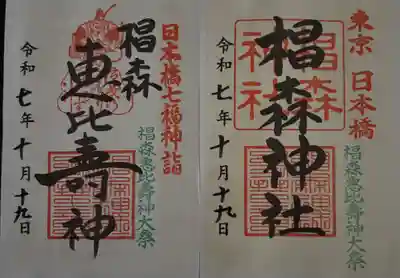 東京 日本橋
椙森神社
椙森神社
椙森恵比寿神大祭
令和七年十月十九日
日本橋七福神詣
椙森
恵比壽神
椙森恵比寿神大祭
令和七年十月十九日